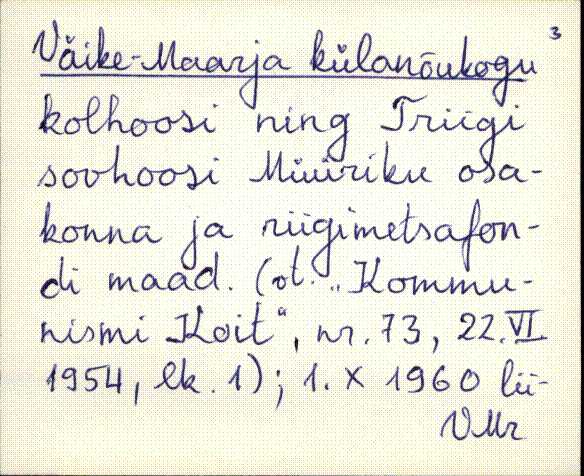 3
Väike-Maarja külanõukogu
kolhoosi ning Triigi
sovhoosi Müüriku osa-
konna ja riigimetsafon-
di maad. (vt. „Kommu-
nismi Koit", nr. 73, 22. VI
1954, lk. 1); 1. X 1960 lii-
VMr